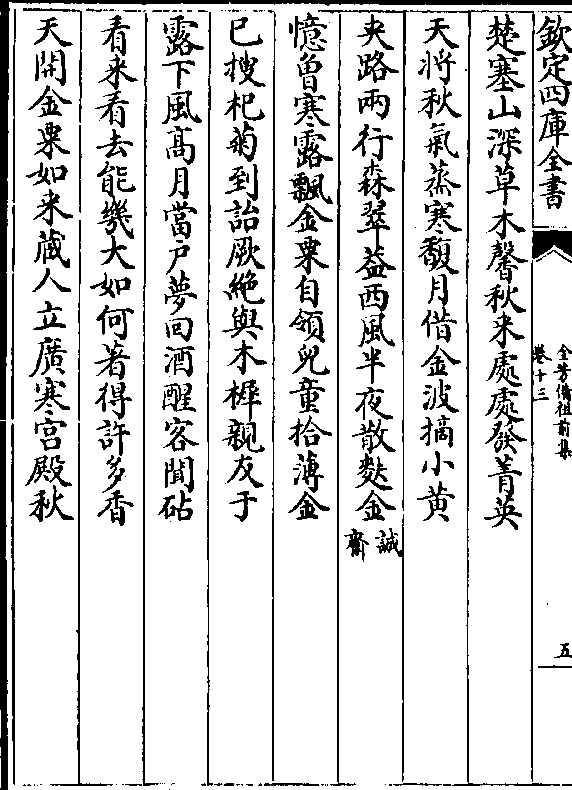 欽定四庫全書
全芳備祖前集
卷十三
五
楚塞山深草木馨秋来處處發菁英
天將秋氣蒸寒馥月借金波摘小黄
夹路兩行森翠葢西風半夜散麩金
誠齋
憶曾寒露飄金粟自領兒童拾薄金
已搜杞菊到詒厥絶與木樨親友于
露下風髙月當户夢回酒醒客聞砧
看来看去能幾大如何著得許多香
天開金粟如来藏人立廣寒宫殿秋